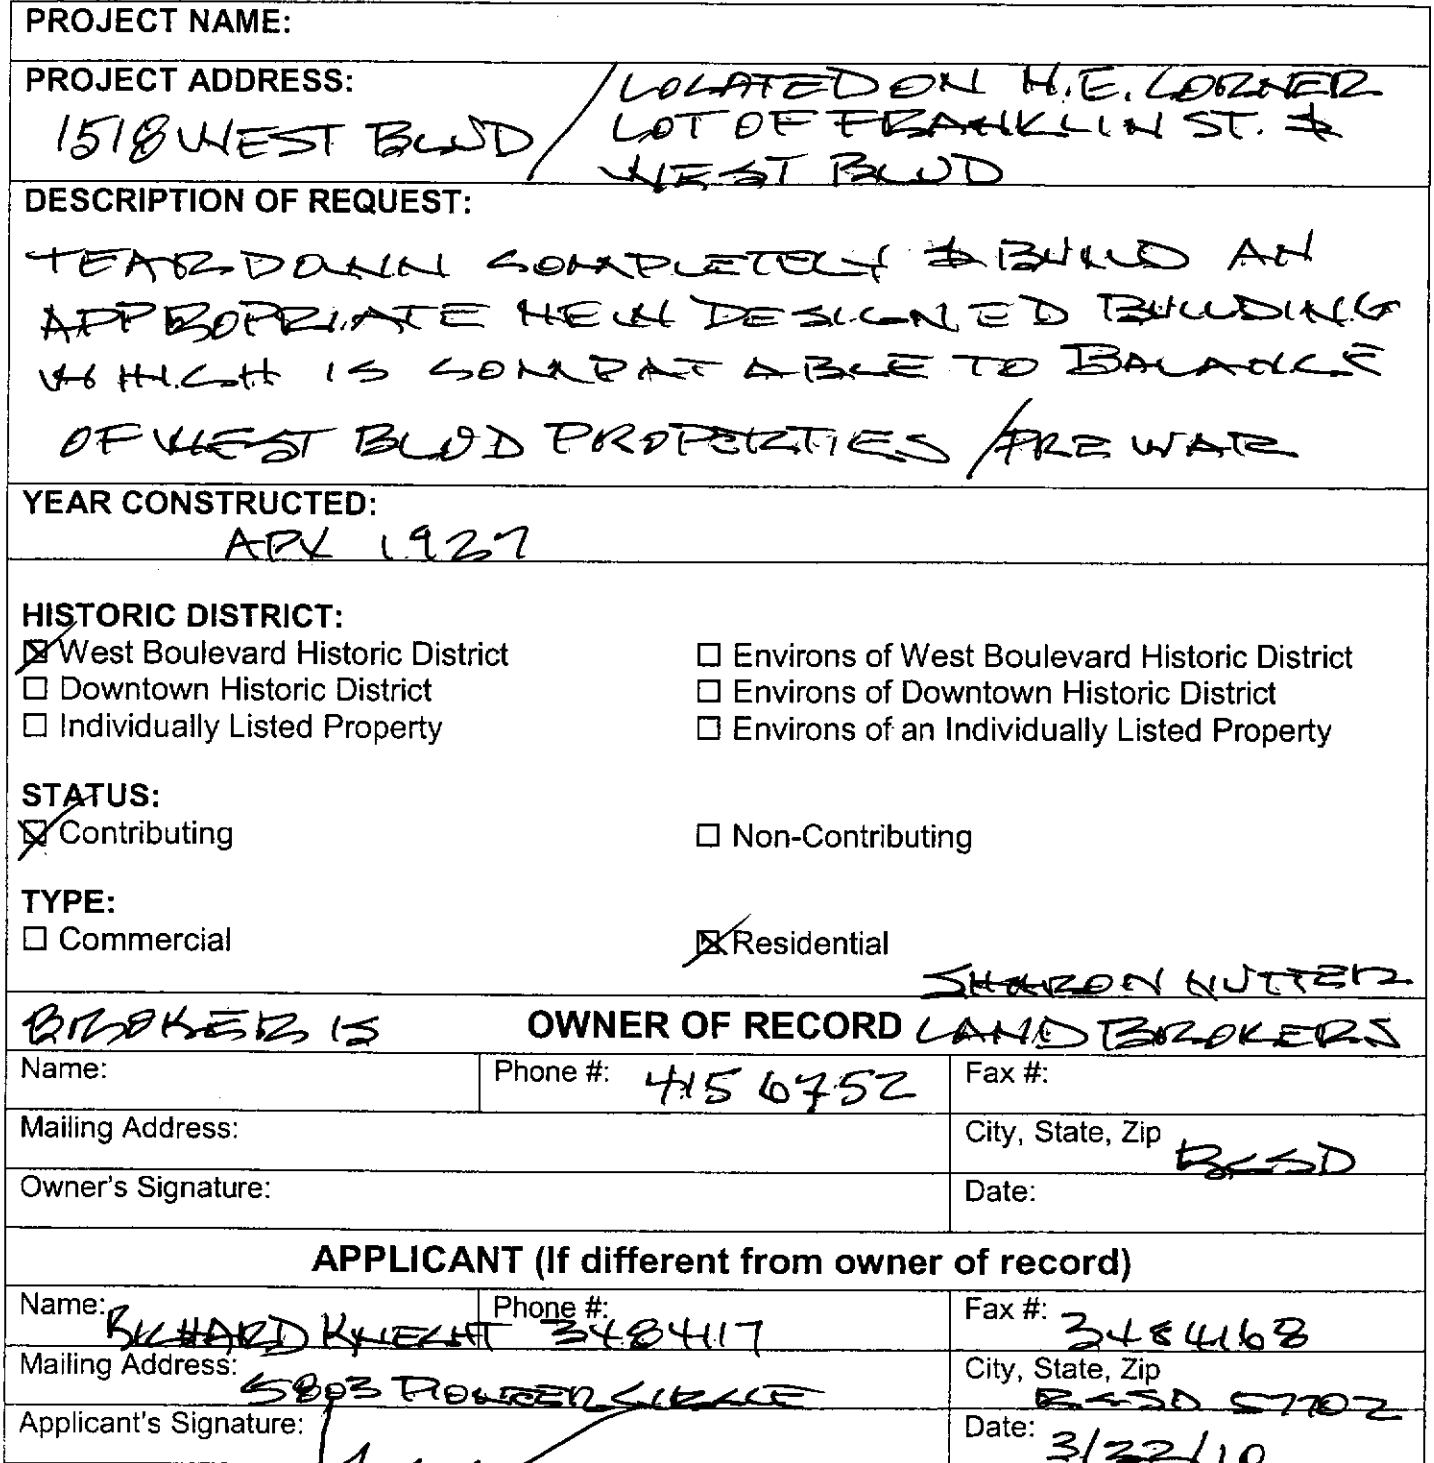 PROJECT NAME:
PROJECT ADDRESS:
1518 WEST BLVD / LOCATED ON N.E. CORNER
LOT OF FRANKLIN ST. &
WEST BLVD
DESCRIPTION OF REQUEST:
TEAR DOWN COMPLETELY & BUILD AN
APPROPRIATE NEW DESIGNED BUILDING
WHICH IS COMPATABLE TO BALANCE
OF WEST BLVD PROPERTIES / PRE WAR
YEAR CONSTRUCTED:
APX 1927
HISTORIC DISTRICT:
☒ West Boulevard Historic District ☐ Environs of West Boulevard Historic District
☐ Downtown Historic District ☐ Environs of Downtown Historic District
☐ Individually Listed Property ☐ Environs of an Individually Listed Property
STATUS:
☒ Contributing ☐ Non-Contributing
TYPE:
☐ Commercial ☒ Residential
SHARON HUTTER
BROKER IS OWNER OF RECORD LAND BROKERS
Name: Phone #: 415 6752 Fax #:
Mailing Address: City, State, Zip RCSD
Owner's Signature: Date:
APPLICANT (If different from owner of record)
Name: RICHARD KNECHT Phone #: 3484117 Fax #: 3484168
Mailing Address: 5803 PIONEER CIRCLE City, State, Zip RCSD 57702
Applicant's Signature: Date: 3/22/10